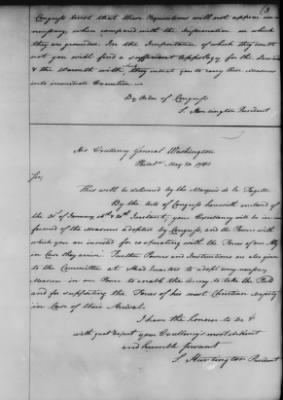 (3
Congress trust that these Requisitions will not appear un-
necessary when compared with the Information on which
they are grounded. In the Importance of which they doubt
not you will find a sufficient Appology for the
& the Warmth with they intreat you to carry these Measures
into immediate Execution
By Order of Congress
S. Huntington President
His Excellency General Washington
Philada May 20 1780
Sir,
This will be delivered by the Marquis de la Fayette
By the Acts of Congress herewith enclosed of
the of & 20th Instant, your Excellency will be in-
formed of the Measures adopted by Congress, and the Powers with
which you are invested for co-operating with the Forces of our Ally
in Case they arrive. Further Powers and Instructions are also given
to the Committee at Head Quarters to adopt any necessary
Measures in our Power to enable the Army to take the Field
and for supporting the Forces of his most Christian Majesty
in Case of their Arrival.
I have the honour to be &
with great Respect your Excellency's most obedient
and humble Servant
S. Huntington President